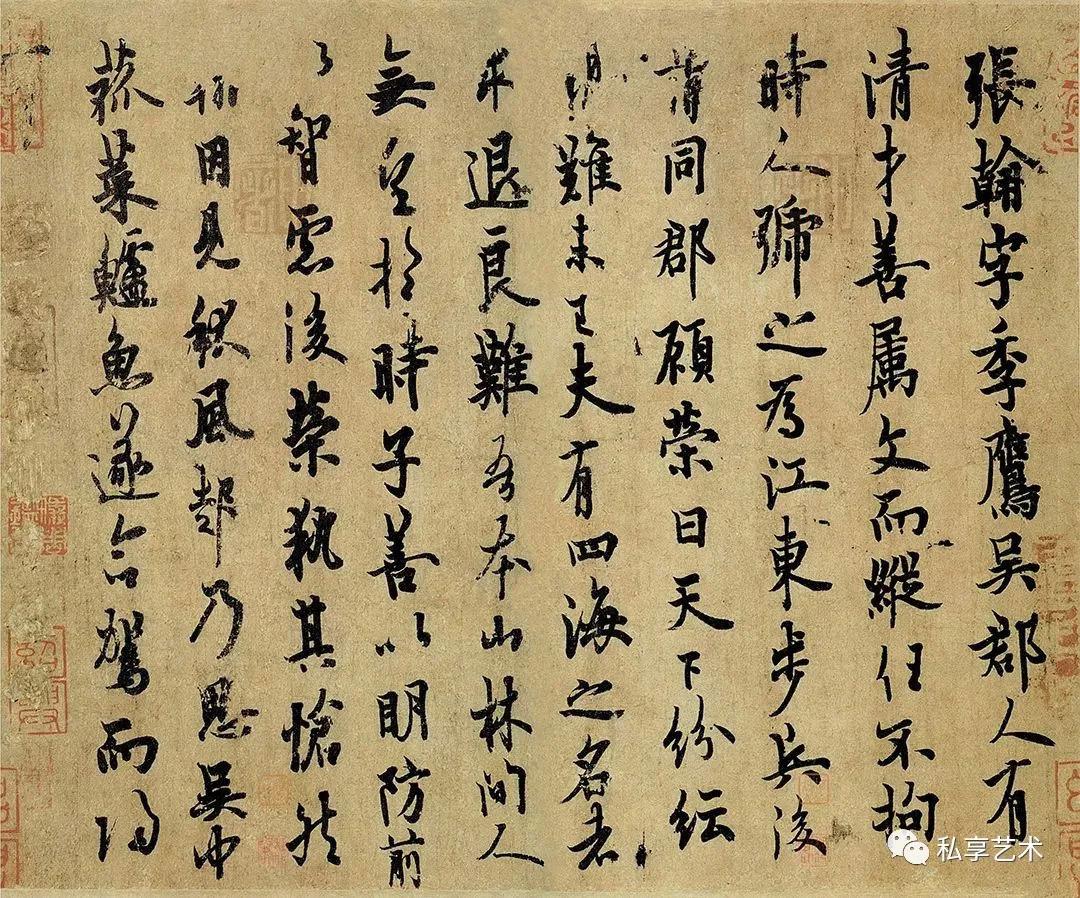 張翰字季鷹吳郡人有
清才善属文而縱任不拘
時人號之為江東步兵後
謂同郡顧榮曰天下紛紜
難未已夫有四海之名者
求退良難吾本山林間人
無望於時子善以明防前
以智慮後榮執其愴然
因見秋風起乃思吳中
菰菜鱸魚遂命駕而歸
私享艺术